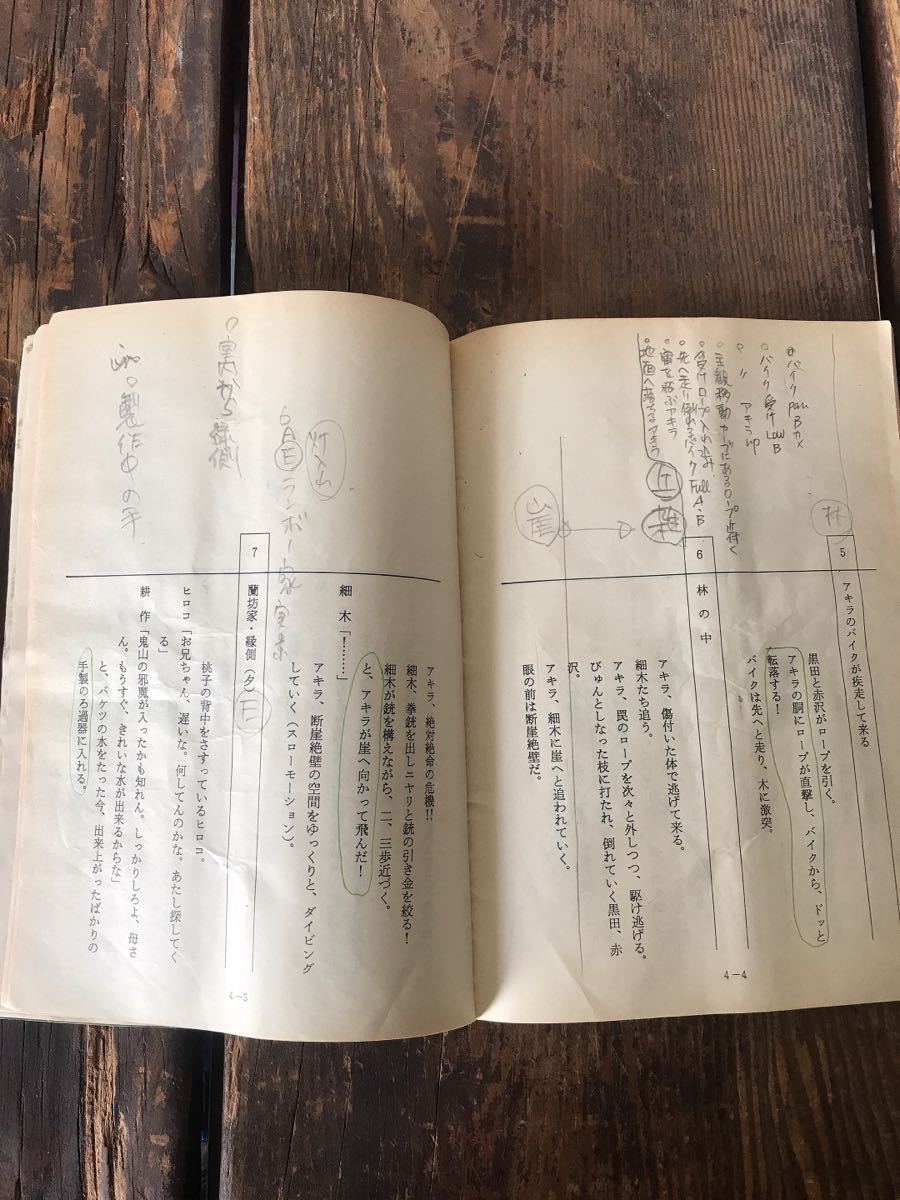 5
アキラのバイクが疾走して来る
黒田と赤沢がロープを引く。
アキラの胴にロープが直撃し、バイクから、ドッと
転落する！
バイクは先へと走り、木に激突。
6
林の中
アキラ、傷付いた体で逃げて来る。
細木たち追う。
アキラ、罠のロープを次々と外しつつ、駆け逃げる。
びゅんとしなった枝に打たれ、倒れていく黒田、赤
沢。
アキラ、細木に崖へと追われていく。
眼の前は断崖絶壁だ。
4－4
林
バイク Pan Bカメ
バイク 受け Low B
〃 アキラ up
主観移動 カーブにあるロープ近付く
受けロープ入れ込み
先へ走り倒れるバイク Full A・B
宙を飛ぶアキラ
地面へ落ちるアキラ
アキラ、絶対絶命の危機!!
細木、拳銃を出しニヤリと銃の引き金を絞る！
細木が銃を構えながら、二、三歩近づく。
と、アキラが崖へ向かって飛んだ！
細木「！……」
アキラ、断崖絶壁の空間をゆっくりと、ダイビング
していく（スローモーション）。
7
蘭坊家・縁側（夕）
桃子の背中をさすっているヒロコ。
ヒロコ「お兄ちゃん、遅いな。何してんのかな。あたし探してく
る」
耕作「鬼山の邪魔が入ったかも知れん。しっかりしろよ、母さ
ん。もうすぐ、きれいな水が出来るからな」
と、バケツの水をたった今、出来上がったばかりの
手製のろ過器に入れる。
4－5
6A
E
ランボー家実景
灯入山
E
製作中の